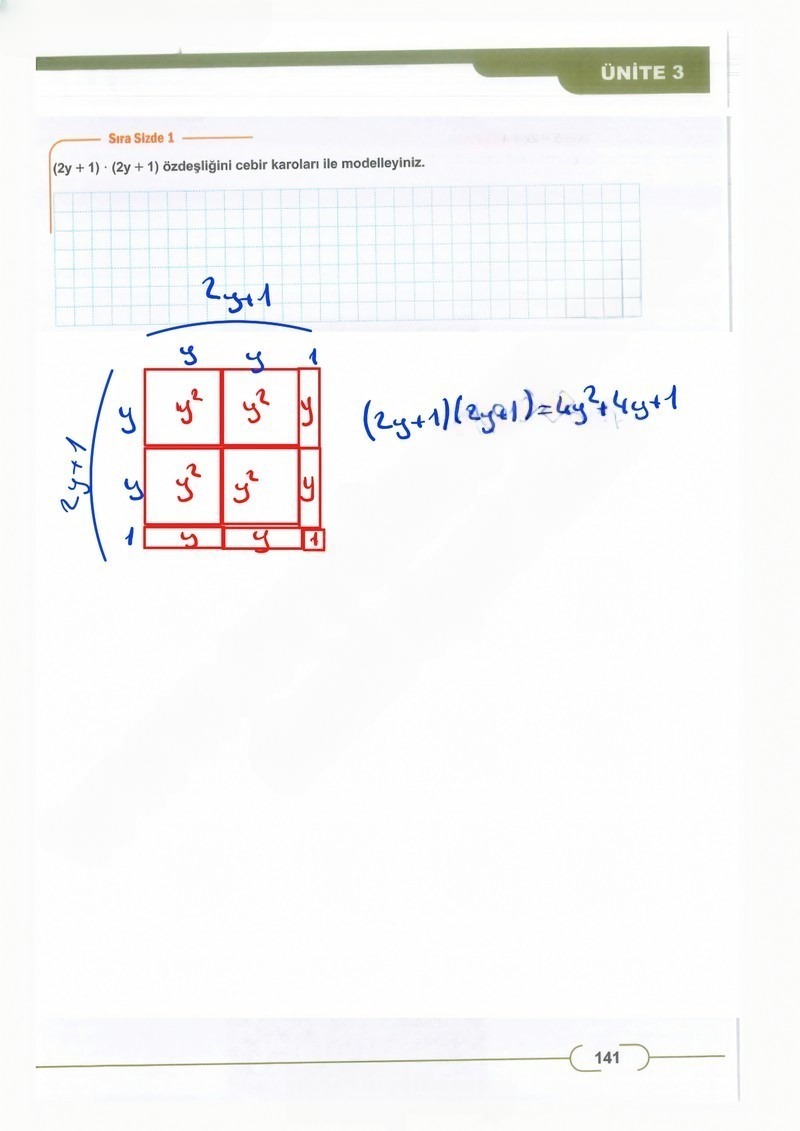 ÜNİTE 3
Sıra Sizde 1
(2y + 1) · (2y + 1) özdeşliğini cebir karoları ile modelleyiniz.
2y+1
y y 1
y y² y² y
(2y+1)(2y+1)=4y²+4y+1
2y+1
y y² y² y
1 y y 1
141